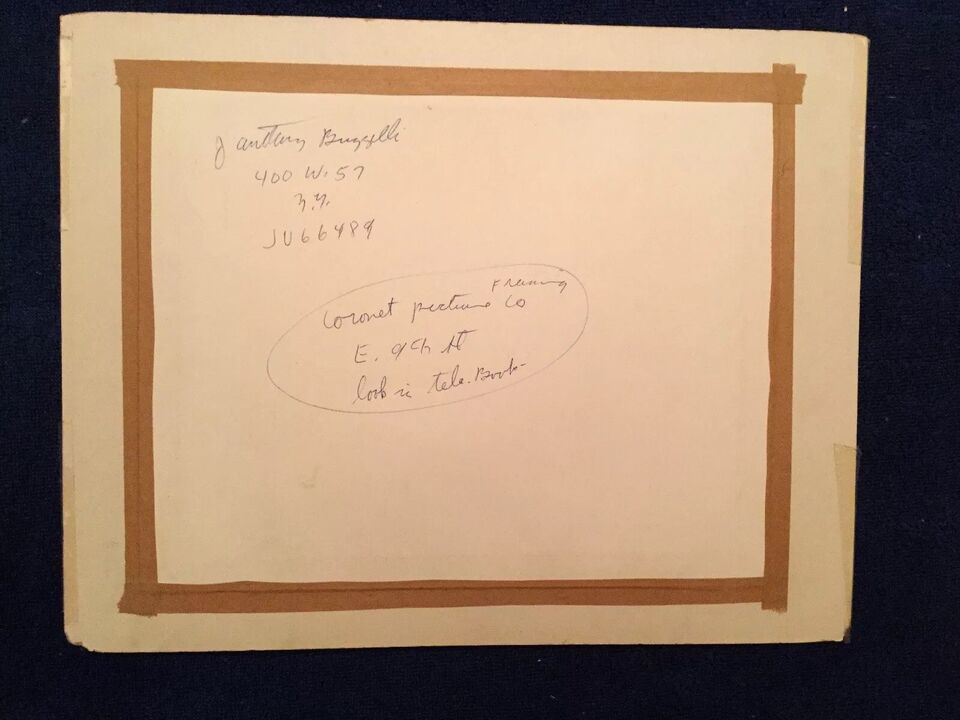 J Anthony Buzzelli
400 W. 57
N.Y.
JU66489
Coronet picture Framing Co
E. 9th St
look in tele. Book-